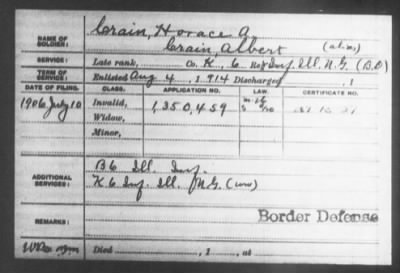 NAME OF SOLDIER:
Crain, Horace A.
Crain, Albert (alias)
SERVICE:
Late rank, Co. K, 6 Reg Inf. Ill. N.G. (B.D)
TERM OF SERVICE:
Enlisted Aug 4, 1914 Discharged , 1
DATE OF FILING. CLASS. APPLICATION NO. LAW. CERTIFICATE NO.
1926 July 10 Invalid, 1,350,459
Widow,
Minor,
ADDITIONAL SERVICES:
B 6 Ill. Inf.
K 6 Inf. Ill. N.G. (WW)
REMARKS:
Border Defense
Died , 1 , at